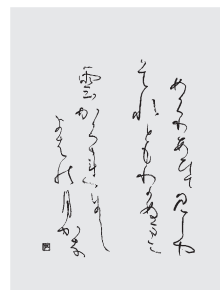 めくりあひて見しや
それともわかぬまに
雲かくれにし
よはの月かな